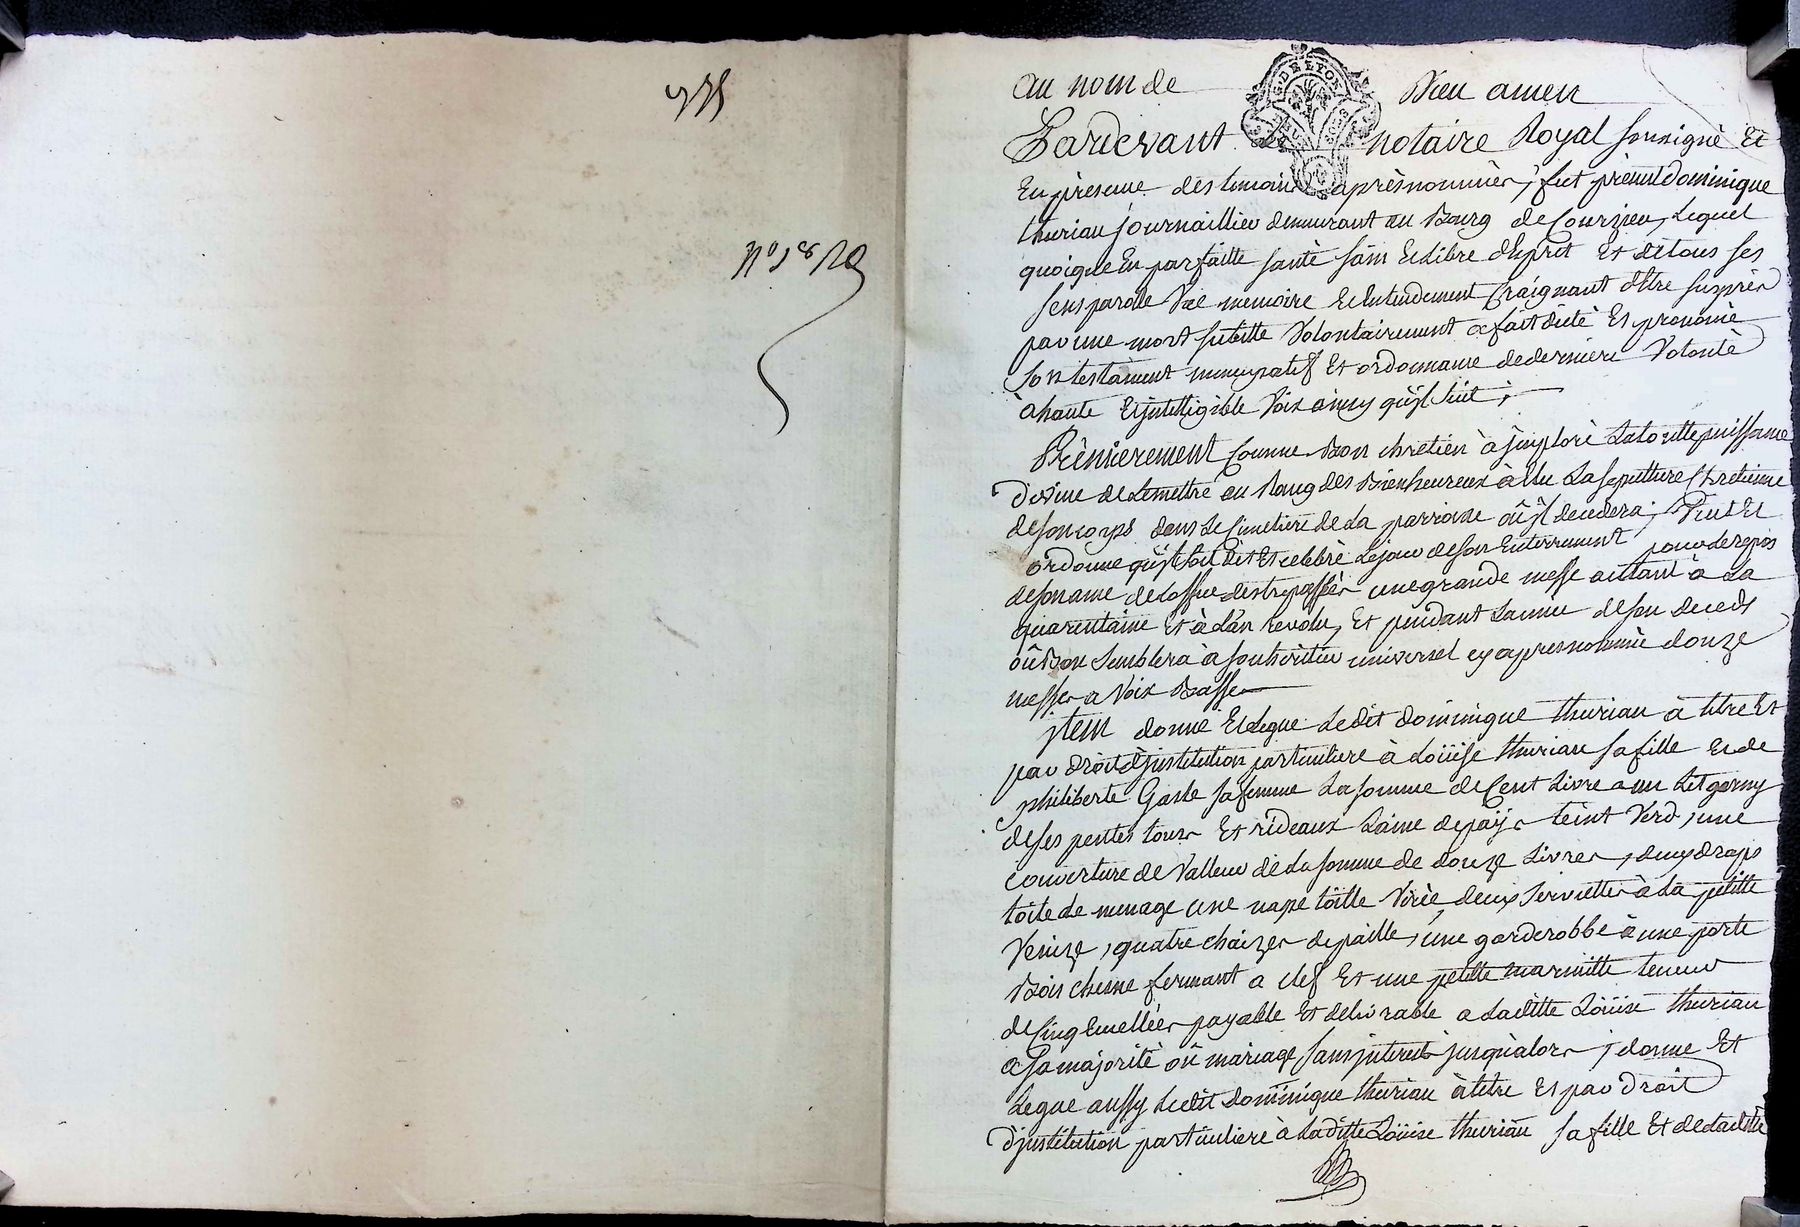 n° 1er
au nom de Dieu amen
Pardevant le notaire Royal soussigné Et
En présence des temoins après nommés, fut présent Dominique
thuriau journaillier demeurant au Bourg de Courzieu, Lequel
quoique En parfaitte santé sain Et Libre d'Esprit Et de tous ses
sens parolle Vüe memoire Et Entendement Craignant d'Etre surpris
par une mort subitte Volontairement a fait dicté Et prononcé
son testament nuncupatif Et ordonnance de derniere Volonté
à haute Et jntelligible Voix ainsy qu'jl suit;
Prèmierement Comme Bon chretien à jmploré La toutte puissance
divine de Le mettre au Rang des Bienheureux à Elu La sepulture Chretienne
de son corps dans Le Cimetiere de La parroisse où jl decedera, Veut Et
ordonne qu'jl soit dit Et celebré Le jour de son Enterrement pour Le repos
de son ame de Loffice des trepassés une grande messe autant à La
quarentaine Et à L'an revolu, Et pendant Lannée de son deceds
où Bon Semblera à son heritier universel cy apres nommé douze
messes a Voix Basse
jtem donne Et Legue Ledit dominique thuriau à titre Et
par droit d'jnstitution particuliere à Loüise thuriau sa fille Et de
philiberte sa femme La somme de Cent Livres un Lit garny
de ses pentes tours Et rideaux Laine de païs teint Verd, une
couverture de Valleur de La somme de douze Livres, deux draps
toile de menage une nape toille deux serviettes à La petitte
Venize, quatre chaizes de paille, une garderobbe à une porte
Bois chesne fermant a clef Et une petitte marmitte teneur
de Cinq Ecuellées payable Et delivrable a Laditte Loüise thuriau
a sa majorité où mariage sans jnterets jusqu'alors, donne Et
Legue aussy Ledit Dominique thuriau à titre Et par droit
d'jnstitution particuliere à Laditte Loüise thuriau sa fille Et de Laditte